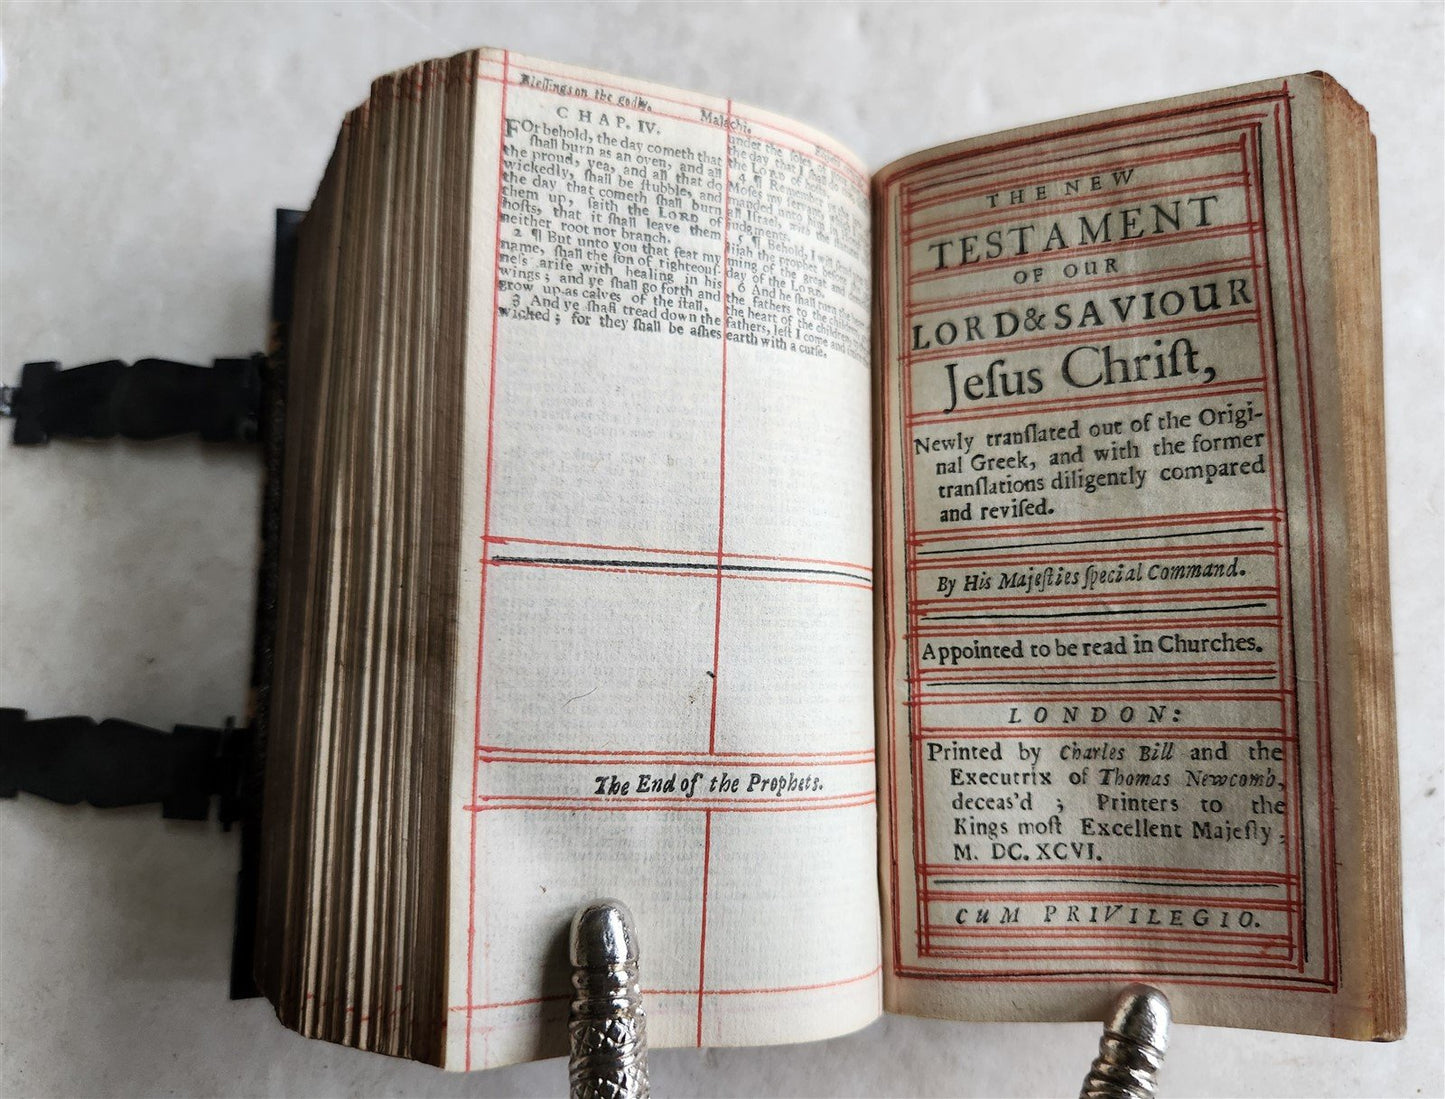 Blessings on the godly.
Malachi.
CHAP. IV.
FOr behold, the day cometh that
ſhall burn as an oven, and all
the proud, yea, and all that do
wickedly, ſhall be ſtubble, and
the day that cometh ſhall burn
them up, ſaith the LORD of
hoſts, that it ſhall leave them
neither root nor branch.
2 ¶ But unto you that fear my
name, ſhall the ſon of righteouſ-
neſs ariſe with healing in his
wings; and ye ſhall go forth and
grow up as calves of the ſtall.
3 And ye ſhall tread down the
wicked; for they ſhall be aſhes
under the ſoles of
the day that I ſhall do
the LORD of hoſts.
4 ¶ Remember
Moſes my ſervant,
manded unto him
all Iſrael, with the
judgments.
5 ¶ Behold, I will ſend
lijah the prophet before
ming of the great and
day of the LORD.
6 And he ſhall turn the
the fathers to the children,
the heart of the children
fathers, leſt I come and
earth with a curſe.
The End of the Prophets.
THE NEW
TESTAMENT
OF OUR
LORD & SAVIOUR
Jeſus Chriſt,
Newly tranſlated out of the Origi-
nal Greek, and with the former
tranſlations diligently compared
and reviſed.
By His Majeſties ſpecial Command.
Appointed to be read in Churches.
LONDON:
Printed by Charles Bill and the
Executrix of Thomas Newcomb,
deceas'd ; Printers to the
Kings moſt Excellent Majeſty,
M. DC. XCVI.
CUM PRIVILEGIO.